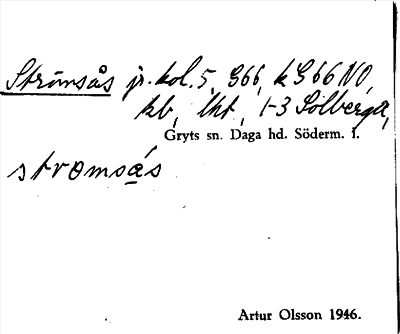 Strömsås jr. kol. 5, 966, k 966 NO,
kb, lht, 1-3 Solberga,
Gryts sn. Daga hd. Söderm. l.
stromsás
Artur Olsson 1946.